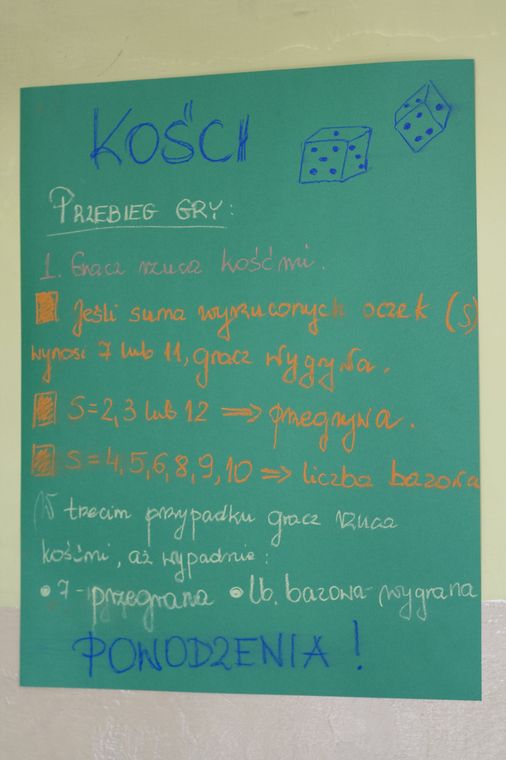 KOŚCI
PRZEBIEG GRY:
1. Gracz rzuca kośćmi.
Jeśli suma wyrzuconych oczek (S)
wynosi 7 lub 11, gracz wygrywa.
S=2,3 lub 12 => przegrywa.
S=4,5,6,8,9,10 => liczba bazowa
W trzecim przypadku gracz rzuca
kośćmi, aż wypadnie:
• 7-przegrana • lb. bazowa-wygrana
POWODZENIA!